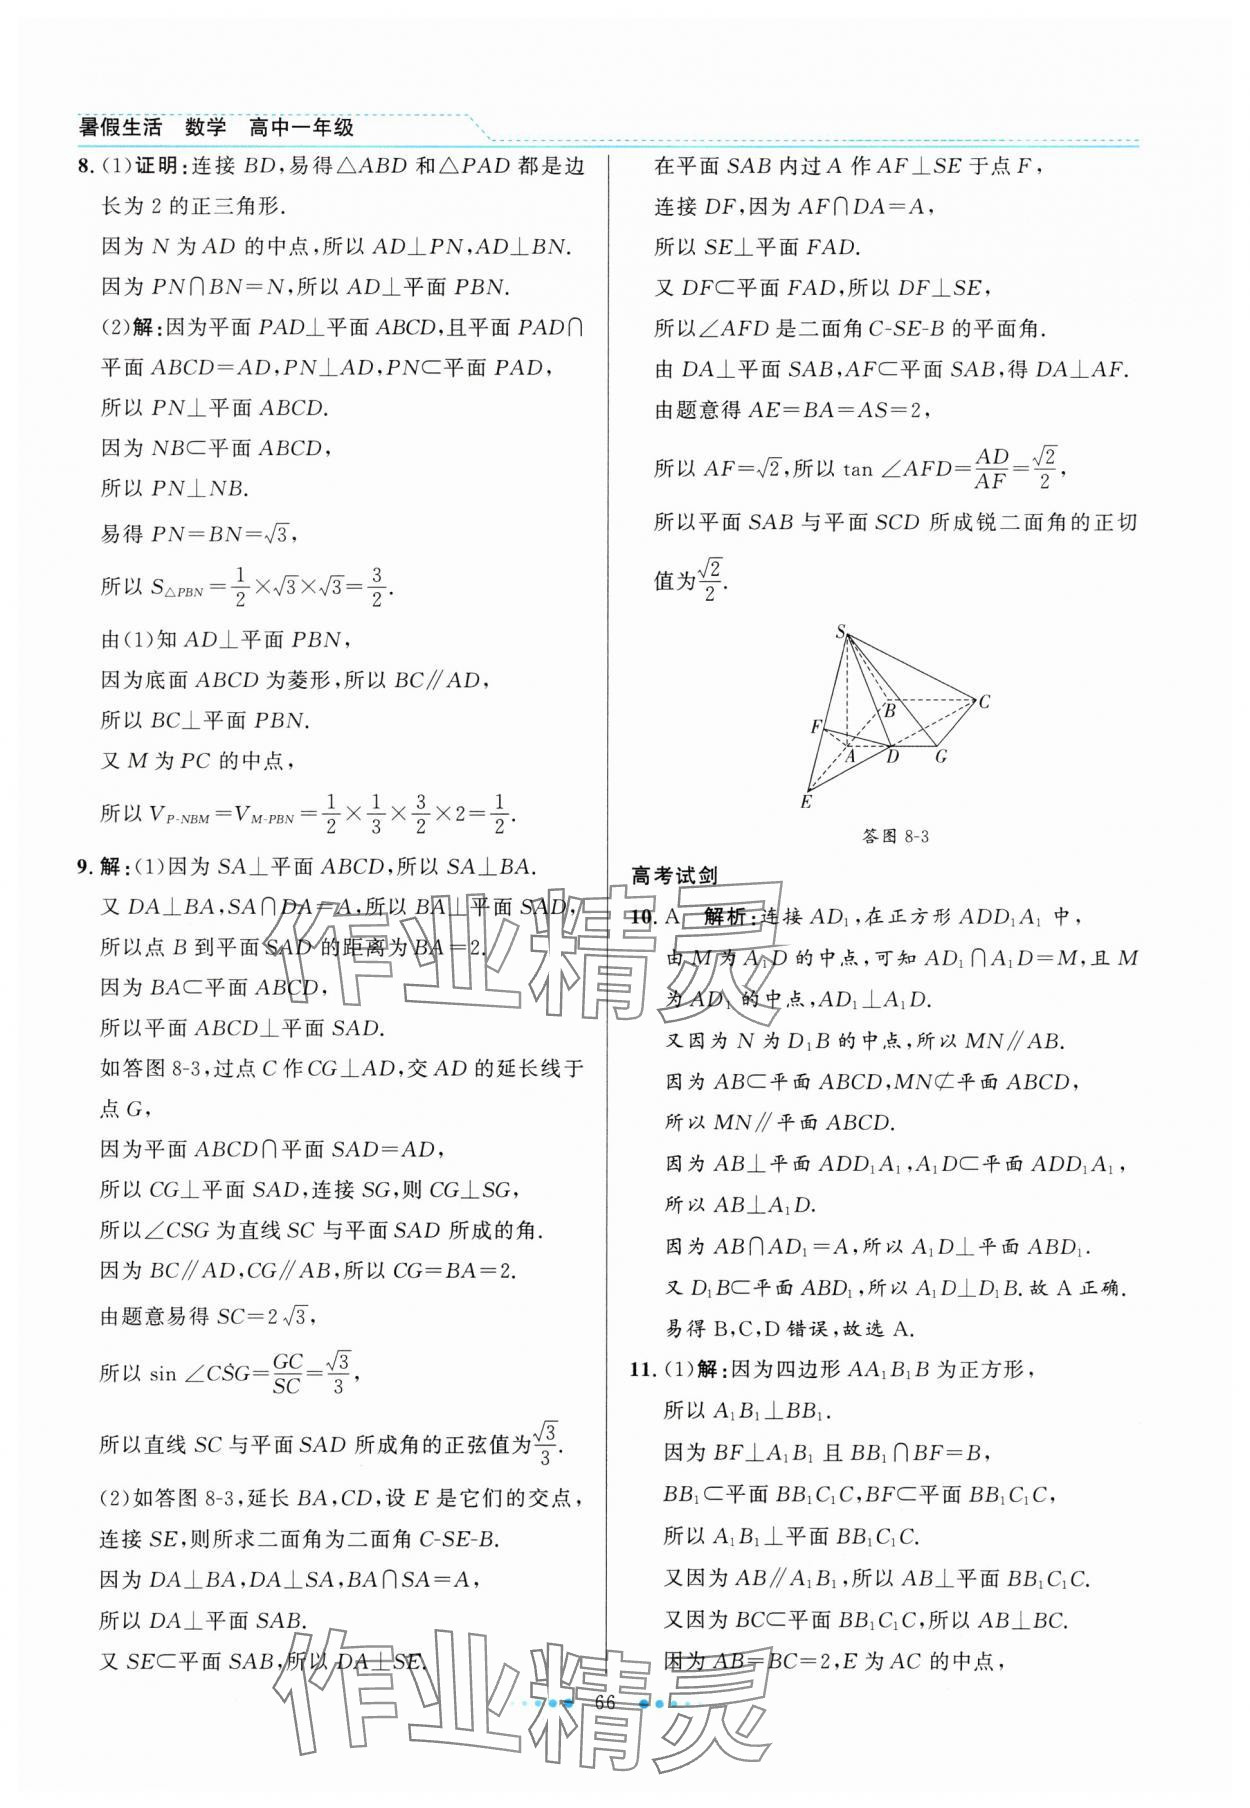 暑假生活　数学　高中一年级
8. (1)证明:连接 BD,易得△ABD 和△PAD 都是边
长为 2 的正三角形.
因为 N 为 AD 的中点,所以 AD⊥PN,AD⊥BN.
因为 PN∩BN=N,所以 AD⊥平面 PBN.
(2)解:因为平面 PAD⊥平面 ABCD,且平面 PAD∩
平面 ABCD=AD,PN⊥AD,PN⊂平面 PAD,
所以 PN⊥平面 ABCD.
因为 NB⊂平面 ABCD,
所以 PN⊥NB.
易得 PN=BN=√3,
所以 S△PBN=1/2×√3×√3=3/2.
由(1)知 AD⊥平面 PBN,
因为底面 ABCD 为菱形,所以 BC∥AD,
所以 BC⊥平面 PBN.
又 M 为 PC 的中点,
所以 V_{P-NBM}=V_{M-PBN}=1/2×1/3×3/2×2=1/2.
9. 解:(1)因为 SA⊥平面 ABCD,所以 SA⊥BA.
又 DA⊥BA,SA∩DA=A,所以 BA⊥平面 SAD,
所以点 B 到平面 SAD 的距离为 BA=2.
因为 BA⊂平面 ABCD,
所以平面 ABCD⊥平面 SAD.
如答图 8-3,过点 C 作 CG⊥AD,交 AD 的延长线于
点 G,
因为平面 ABCD∩平面 SAD=AD,
所以 CG⊥平面 SAD,连接 SG,则 CG⊥SG,
所以∠CSG 为直线 SC 与平面 SAD 所成的角.
因为 BC∥AD,CG∥AB,所以 CG=BA=2.
由题意易得 SC=2√3,
所以 sin ∠CSG=GC/SC=√3/3,
所以直线 SC 与平面 SAD 所成角的正弦值为√3/3.
(2)如答图 8-3,延长 BA,CD,设 E 是它们的交点,
连接 SE,则所求二面角为二面角 C-SE-B.
因为 DA⊥BA,DA⊥SA,BA∩SA=A,
所以 DA⊥平面 SAB.
又 SE⊂平面 SAB,所以 DA⊥SE.
在平面 SAB 内过 A 作 AF⊥SE 于点 F,
连接 DF,因为 AF∩DA=A,
所以 SE⊥平面 FAD.
又 DF⊂平面 FAD,所以 DF⊥SE,
所以∠AFD 是二面角 C-SE-B 的平面角.
由 DA⊥平面 SAB,AF⊂平面 SAB,得 DA⊥AF.
由题意得 AE=BA=AS=2,
所以 AF=√2,所以 tan ∠AFD=AD/AF=√2/2,
所以平面 SAB 与平面 SCD 所成锐二面角的正切
值为√2/2.
S
B
C
F
A
D
G
E
答图 8-3
高考试剑
10. A　解析:连接 AD₁,在正方形 ADD₁A₁ 中,
由 M 为 A₁D 的中点,可知 AD₁∩A₁D=M,且 M
为 AD₁ 的中点,AD₁⊥A₁D.
又因为 N 为 D₁B 的中点,所以 MN∥AB.
因为 AB⊂平面 ABCD,MN⊄平面 ABCD,
所以 MN∥平面 ABCD.
因为 AB⊥平面 ADD₁A₁,A₁D⊂平面 ADD₁A₁,
所以 AB⊥A₁D.
因为 AB∩AD₁=A,所以 A₁D⊥平面 ABD₁.
又 D₁B⊂平面 ABD₁,所以 A₁D⊥D₁B.故 A 正确.
易得 B,C,D 错误,故选 A.
11. (1)解:因为四边形 AA₁B₁B 为正方形,
所以 A₁B₁⊥BB₁.
因为 BF⊥A₁B₁ 且 BB₁∩BF=B,
BB₁⊂平面 BB₁C₁C,BF⊂平面 BB₁C₁C,
所以 A₁B₁⊥平面 BB₁C₁C.
又因为 AB∥A₁B₁,所以 AB⊥平面 BB₁C₁C.
又因为 BC⊂平面 BB₁C₁C,所以 AB⊥BC.
因为 AB=BC=2,E 为 AC 的中点,
66
作业精灵
作业精灵